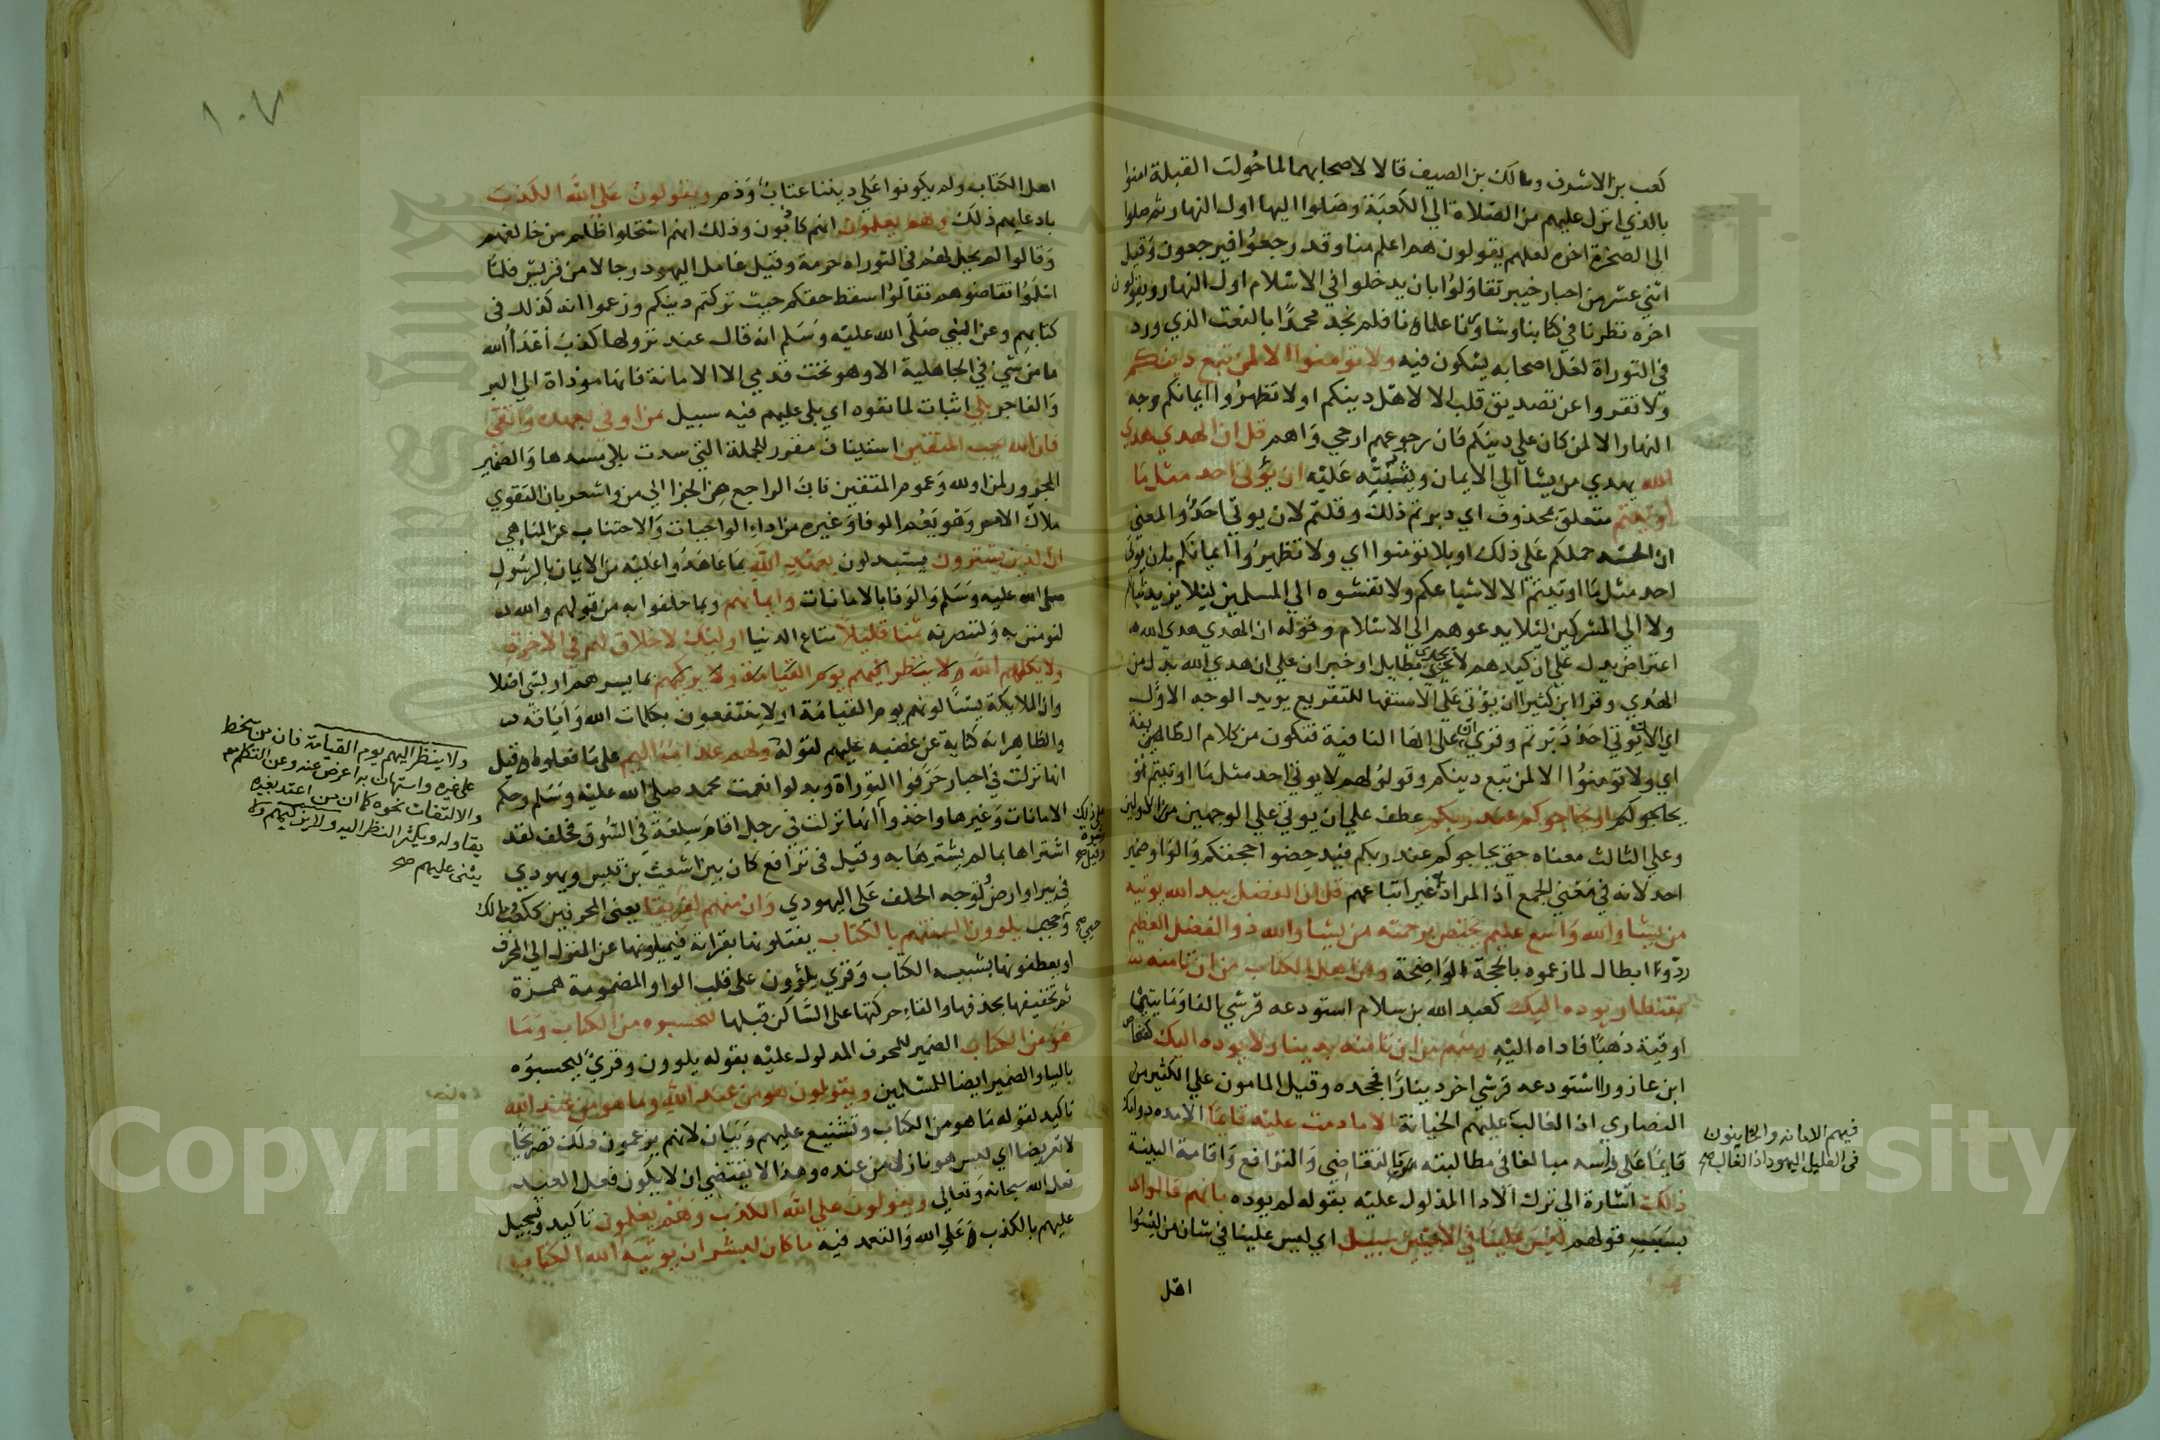 كعب بن الاشرف ومالك بن الصيف قالا لاصحابهما لما حُولت القبلة امنوا
بالذي انزل عليهم من الصلاة الي الكعبة وصلوا اليها اول النهار ثم صلوا
الي الصخرة اخره لعلهم يقولون هم اعلم منا وقد رجعوا فيرجعون وقيل
اثني عشر من احبار خيبر تقاولوا بان يدخلوا في الاسلام اول النهار ويقولون
اخره نظرنا في كتابنا وشاورنا علمانا فلم نجد محمدًا بالنعت الذي ورد
في التوراة لعل اصحابه يشكون فيه ولا تؤمنوا الا لمن تبع دينكم
ولا تقروا عن تصديق قلب الا لاهل دينكم او لا تظهروا ايمانكم وجه
النهار الا لمن كان علي دينكم فان رجوعهم ارجي واهم قل ان الهدي هدي
الله يهدي من يشا الي الايمان ويثبته عليه ان يؤتي احد مثل ما
اوتيتم متعلق بمحذوف اي دبرتم ذلك وقلتم لان يوتي احد والمعني
ان الحسد حملكم علي ذلك او بلا تؤمنوا اي ولا تظهروا ايمانكم بان يوتي
احد مثل ما اوتيتم الا لاشياعكم ولا تفشوه الي المسلمين ليلا يزيد ثباتهم
ولا الي المشركين لئلا يدعوهم الي الاسلام وقوله ان الهدي هدي الله
اعتراض يدل علي ان كيدهم لا يجدي بطايل او خبر ان علي ان هدي الله بدل من
الهدي وقرا ابن كثير اان يؤتي علي الاستفهام للتقريع يويد الوجه الاول
اي الان يوتي احد دبرتم وقري ان علي انها النافية فتكون من كلام الطايفة
اي ولا تومنوا الا لمن تبع دينكم وقولوا لهم لا يوتي احد مثل ما اوتيتم او
يحاجوكم او يحاجوكم عند ربكم عطف علي ان يوتي علي الوجهين الاولين
وعلي الثالث معناه حتي يحاجوكم عند ربكم فيدحضوا حجتكم والواو ضمير
احد لانه في معني الجمع اذ المراد به غير اتباعهم قل ان الفضل بيد الله يوتيه
من يشا والله واسع عليم يختص برحمته من يشا والله ذو الفضل العظيم
رد وابطال لما زعموه بالحجة الواضحة ومن اهل الكتاب من ان تامنه
بقنطار يوده اليك كعبد الله بن سلام استودعه قرشي الفا ومايتي
اوقية ذهبًا فاداه اليه ومنهم من ان تامنه بدينار لا يوده اليك كفنحاص
ابن عازورا استودعه قرشي اخر دينارًا فجحده وقيل المامون علي الكثير من
النصاري اذ الغالب عليهم الخيانة الا ما دمت عليه قايمًا الا مدة دوامك
قايمًا علي راسه مبالغا في مطالبته بالتقاضي والترافع واقامة البينة
ذلك اشارة الي ترك الادا المدلول عليه بقوله لم يوده بانهم قالوا
بسبب قولهم ليس علينا في الاميين سبيل اي ليس علينا في شان من ليسوا
اهل
فيهم الامانه والخاينون
في القليل اليهود اذ الغالب صح
١٠٧
اهل الكتاب ولم يكونوا علي ديننا عتاب وذم ويقولون علي الله الكذب
بادعايهم ذلك وهم يعلمون انهم كاذبون وذلك انهم استحلوا ظلم من خالفهم
وقالوا لم يجعل لهم في التوراه حرمة وقيل عامل اليهود رجالا من قريش فلما
اسلموا تقاضوهم فقالوا سقط حقكم حيث تركتم دينكم وزعموا انه كذلك في
كتابهم وعن النبي صلي الله عليه وسلم انه قال عند نزولها كذب اعدا الله
ما من شئ في الجاهلية الا وهو تحت قدمي الا الامانة فانها موداة الي البر
والفاجر بلي اثبات لما نفوه اي بلي عليهم فيه سبيل من اوفي بعهده واتقي
فان الله يحب المتقين استيناف مقرر للجملة التي سدت بلي مسدها والضمير
المجرور لمن او لله وعموم المتقين ناب الراجع من الجزا الي من واشعر بان التقوي
ملاك الامر وهو يعم الوفا وغيره من اداء الواجبات والاجتناب عن المناهي
ان الذين يشترون يستبدلون بعهد الله بما عاهدوا عليه من الايمان بالرسول
صلي الله عليه وسلم والوفا بالامانات وايمانهم وبما حلفوا به من قولهم والله
لنومنن به ولننصرنه ثمنا قليلا متاع الدنيا اوليك لا خلاق لهم في الاخرة
ولا يكلمهم الله ولا ينظر اليهم يوم القيامة ولا يزكيهم بما يسرهم او بشي اصلا
وان الملايكة يسالونهم يوم القيامة او لا ينتفعون بكلمات الله واياته
والظاهر انه كناية عن غضبه عليهم لقوله ولهم عذاب اليم علي ما فعلوه وقيل
انها نزلت في احبار حرفوا التوراة وبدلوا نعت محمد صلي الله عليه وسلم وحكم
الامانات وغيرها واخذوا انها نزلت في رجل اقام سلعة في السوق فحلف لقد
اشتراها بما لم يشترها به وقيل في ترافع كان بين اشعث بن قيس ويهودي
في بير او ارض توجه الحلف علي اليهودي وان منهم لفريقا يعني المحرفين ككعب ومالك
يلوون السنتهم بالكتاب يفتلونها بقراته فيميلونها عن المنزل الي المحرف
او يعطفونها بشبه الكتاب وقري يلوون علي قلب الواو المضمومة همزة
ثم تخفيفها بحذفها والقاء حركتها علي الساكن قبلها لتحسبوه من الكتاب وما
هو من الكتاب الضمير للمحرف المدلول عليه بقوله يلوون وقري ليحسبوه
باليا والضمير ايضا للمسلمين ويقولون هو من عند الله وما هو من عند الله
تاكيد لقوله ما هو من الكتاب وتشنيع عليهم وبيان لانهم يزعمون ذلك تصريحًا
لا تعريضا اي ليس هو نازلا من عنده وهذا لا يقتضي ان لا يكون فعل العبد
فعل الله سبحانه وتعالي ويقولون علي الله الكذب وهم يعلمون تاكيد وتسجيل
عليهم بالكذب علي الله والتعمد فيه ما كان لبشر ان يوتيه الله الكتاب
ولا ينظر اليهم يوم القيامة فان من سخط
علي غيره واستهان به اعرض عنه وعن التكلم معه
والالتفات نحوه كما ان من اعتد بغيره
يقاوله ويكثر النظر اليه ولا يزكيهم ولا
يثني عليهم صح